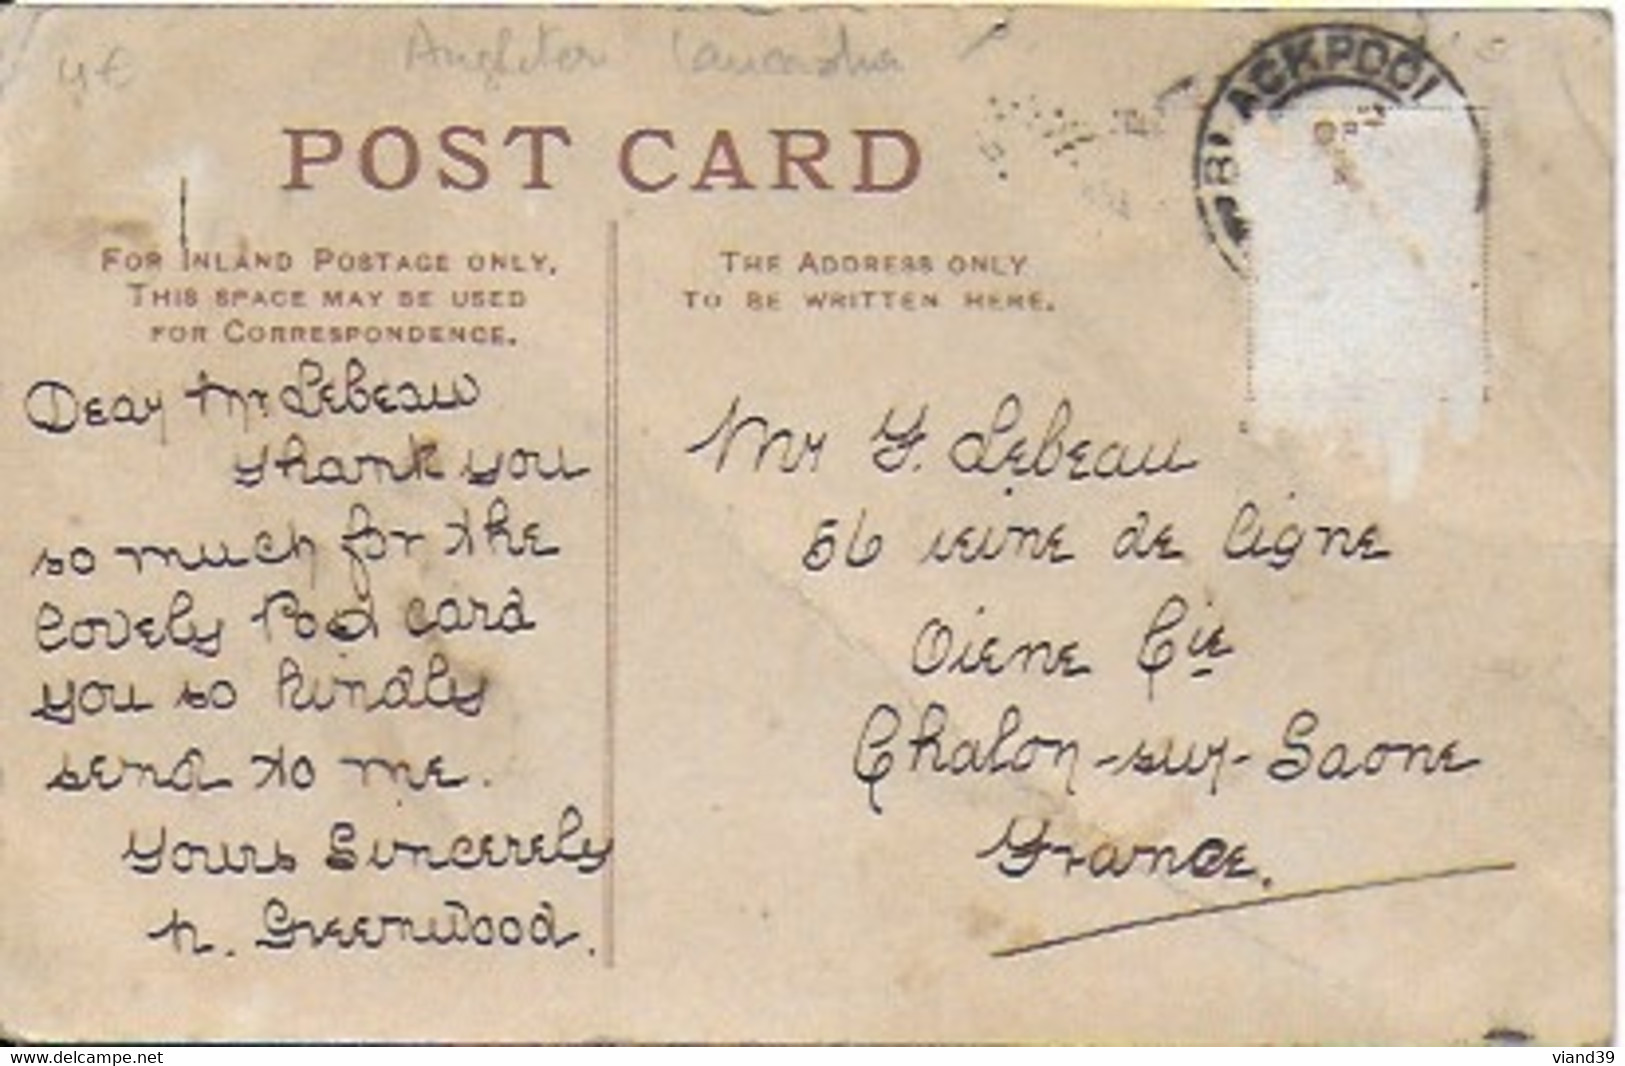 4€
Lancashir
BLACKPOOL
POST CARD
FOR INLAND POSTAGE ONLY,
THIS SPACE MAY BE USED
FOR CORRESPONDENCE.
THE ADDRESS ONLY
TO BE WRITTEN HERE.
Dear Mr. Lebeau
Thank you
so much for the
lovely Post card
you so kindly
send to me.
Yours Sincerely
N. Greenwood.
Mr F. Lebeau
56 ieine de ligne
Oiene Cie
Chalon-sur-Saone
France.
www.delcampe.net
viand39